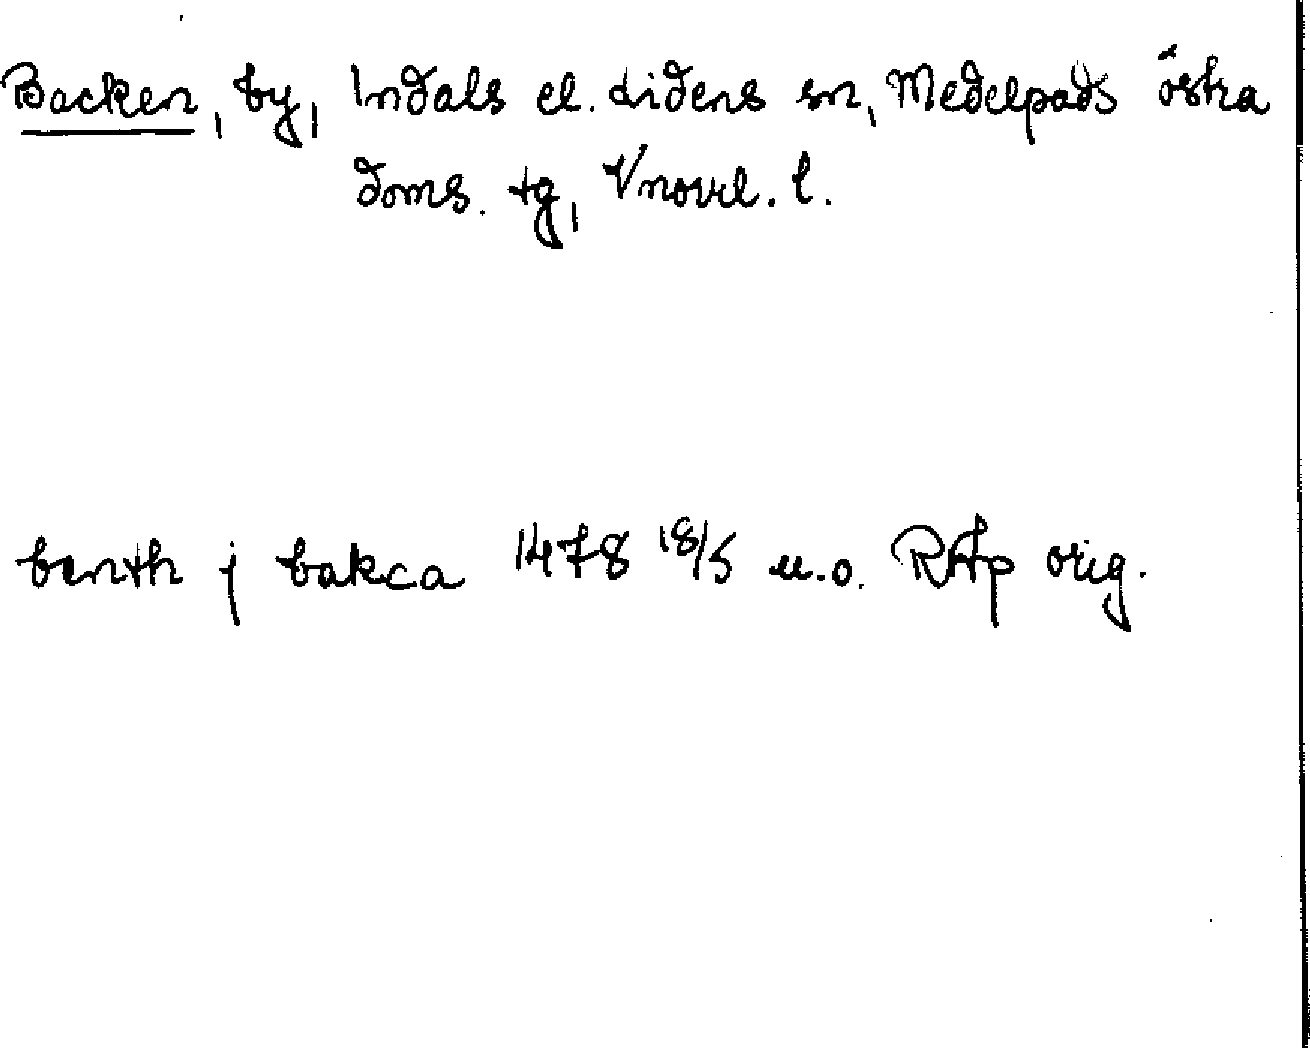 Backen, by, Indals el. Lidens sn, Medelpads östra
doms. tg, Vnorrl. l.
benth j bakca 1478 18/5 u.o. RAp orig.